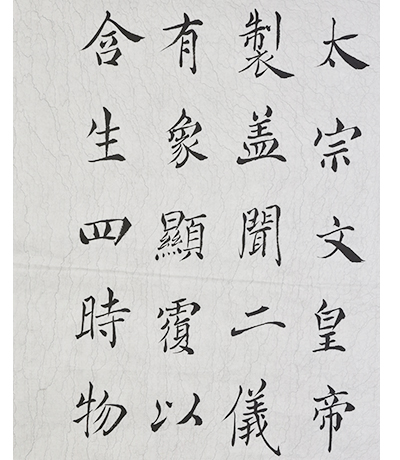 太宗文皇帝
製盖聞二儀
有象顯覆以
含生四時物